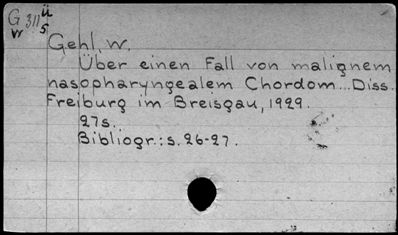 G 311 ü
w 5
Gehl, W.
Über einen Fall von malignem
nasopharyngealem Chordom... Diss.
Freiburg im Breisgau, 1929.
27s.
Bibliogr.: s. 26-27.